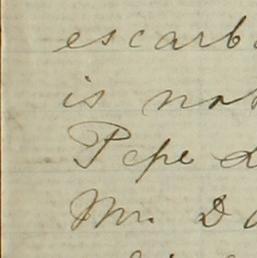 escarb
is not
Pepe
Mr. D